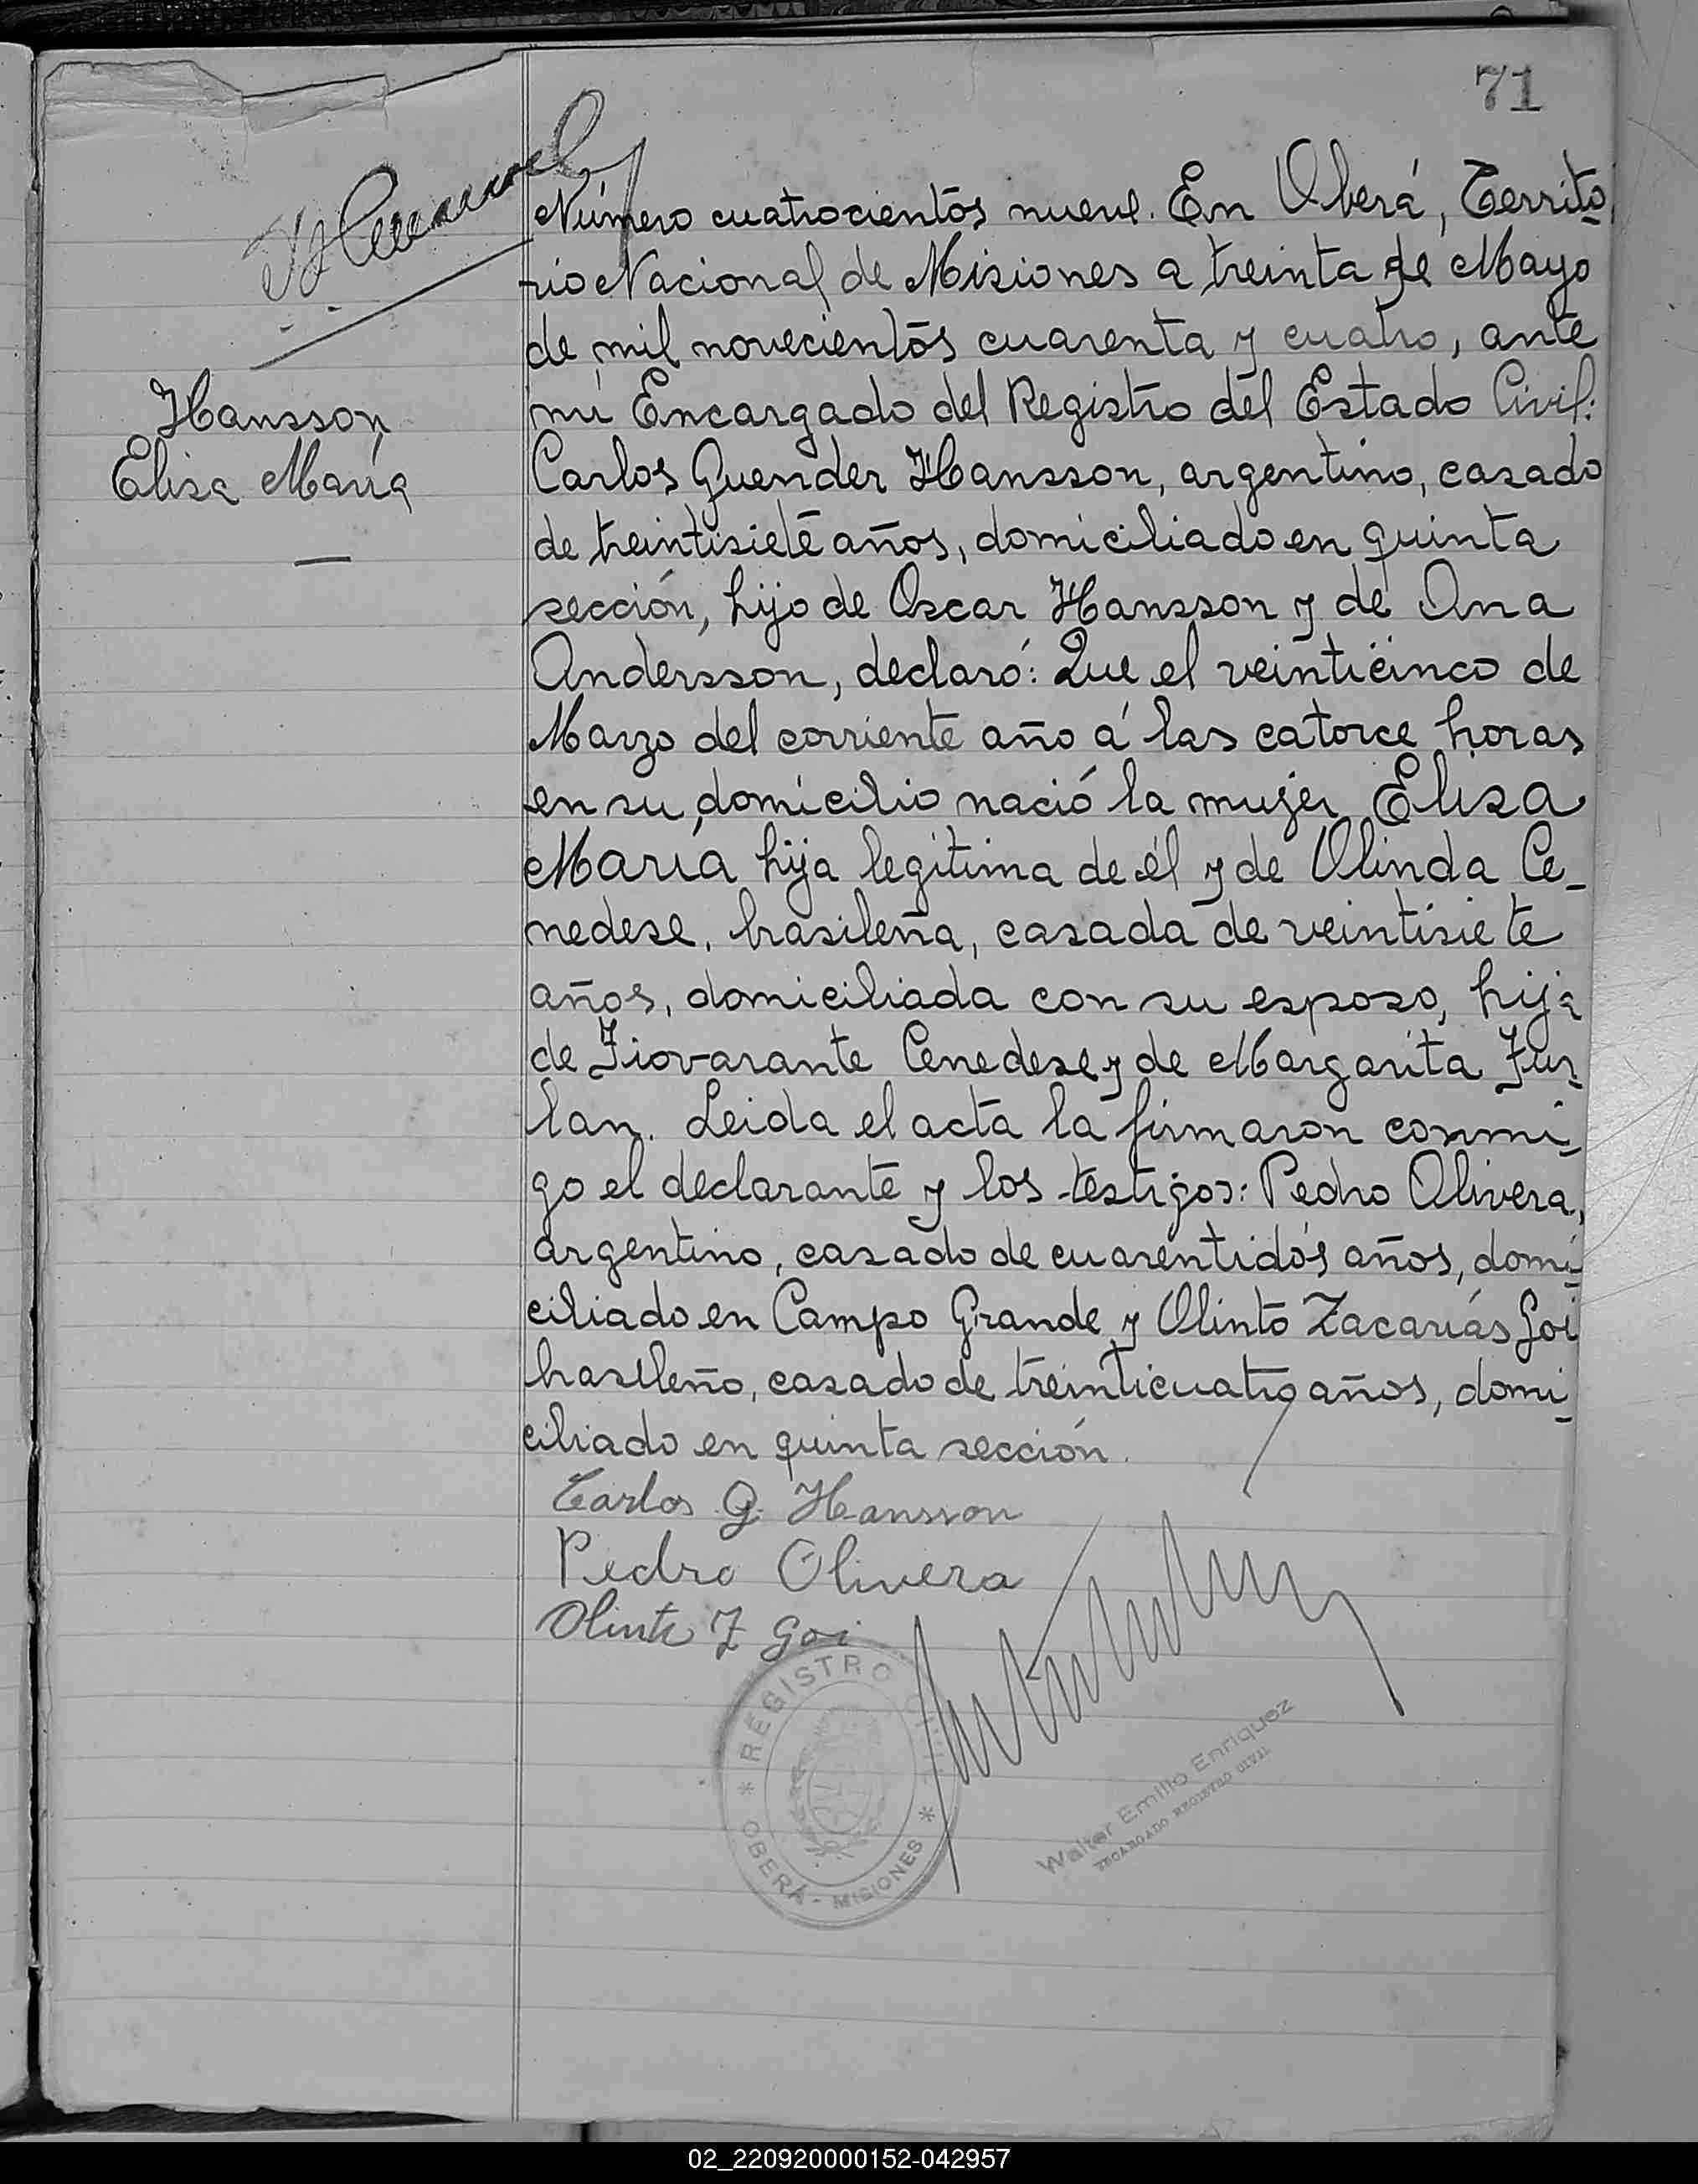 71
Número cuatrocientos nueve. En Oberá, Territo
rio Nacional de Misiones a treinta de Mayo
de mil novecientos cuarenta y cuatro, ante
mi Encargado del Registro del Estado Civil:
Hansson
Elisa María
Carlos Guender Hansson, argentino, casado
de treintisiete años, domiciliado en quinta
sección, hijo de Oscar Hansson y de Ana
Andersson, declaró: Que el veinticinco de
Marzo del corriente año á las catorce horas
en su domicilio nació la mujer Elisa
María hija legítima de él y de Olinda Ce-
nedese, brasileña, casada de veintisiete
años, domiciliada con su esposo, hija
de Fiovarante Cenedese y de Margarita Fur-
lan. Leida el acta la firmaron conmi-
go el declarante y los testigos: Pedro Olivera,
argentino, casado de cuarentidós años, domi-
ciliado en Campo Grande y Olinto Zacarías Goi
brasileño, casado de treinticuatro años, domi-
ciliado en quinta sección.
Carlos G. Hansson
Pedro Olivera
Olinto Z Goi
REGISTRO CIVIL
* OBERÁ - MISIONES *
Walter Emilio Enriquez
ENCARGADO REGISTRO CIVIL
02_220920000152-042957